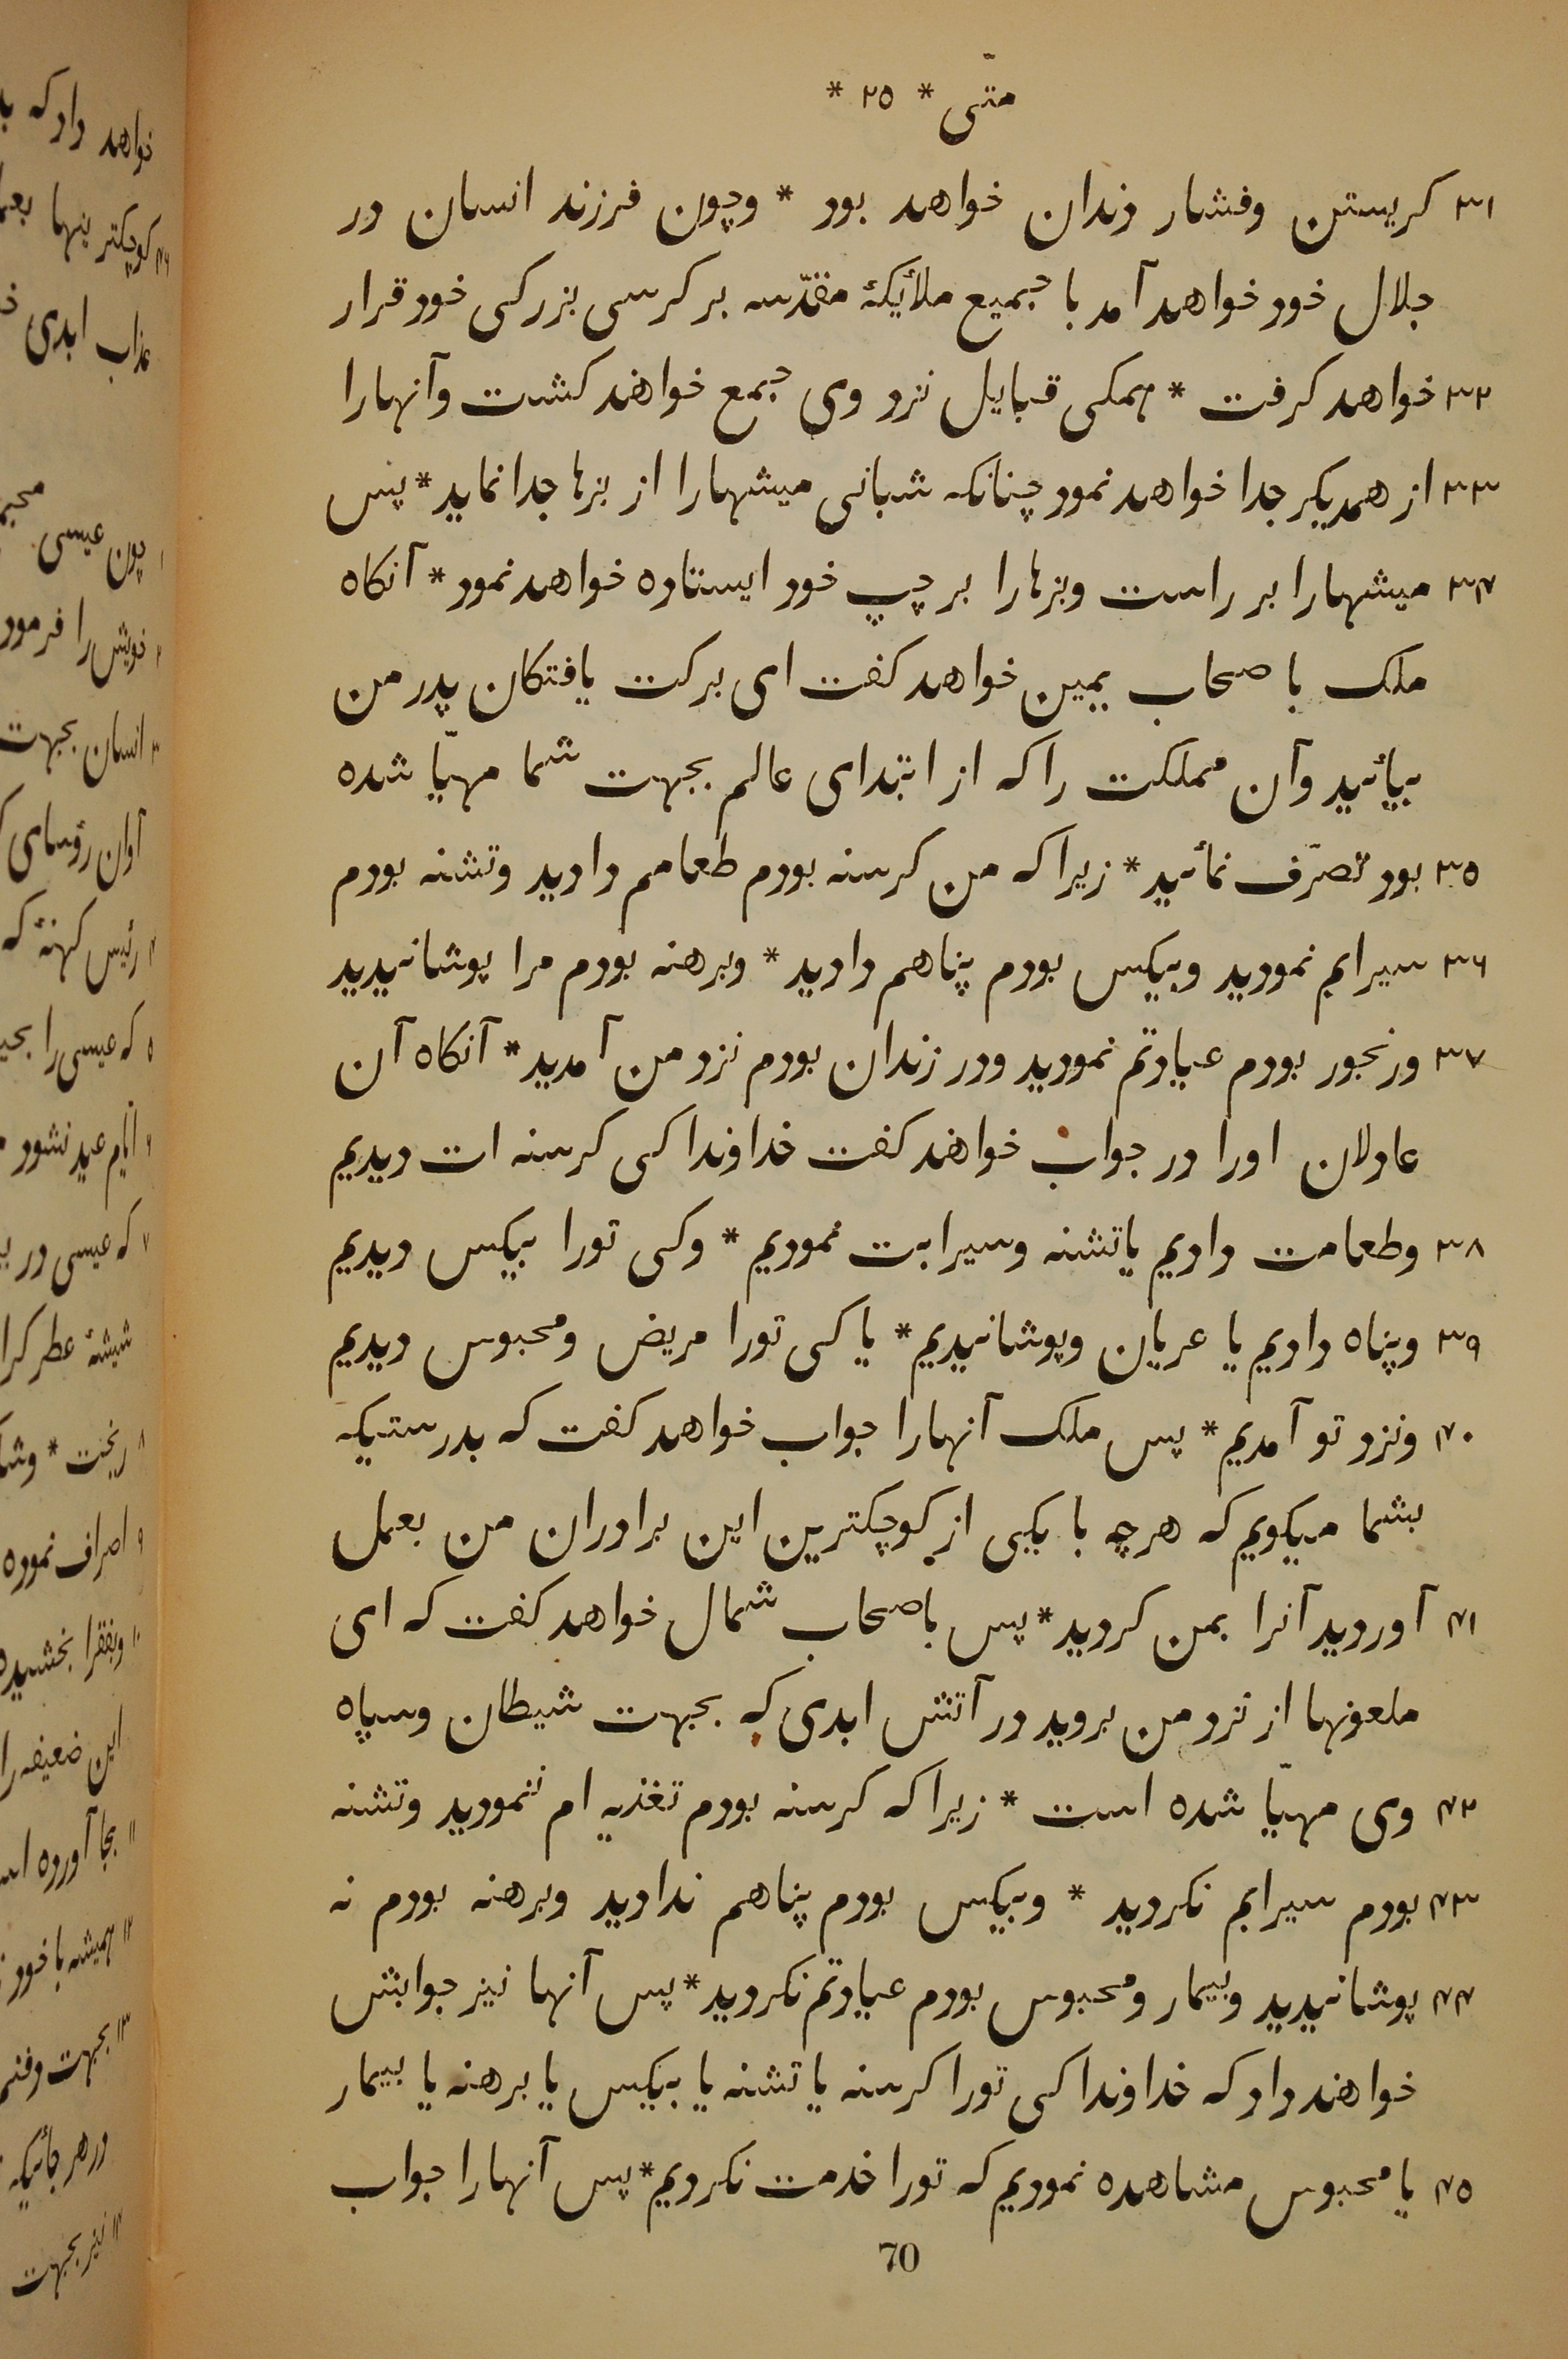 متّی * ٢٥ *
٣١ كریستن وفشار دندان خواهد بود * وچون فرزند انسان در
جلال خود خواهد آمد با جمیع ملأیكهٔ مقدّسه بر كرسی بزركی خود قرار
٣٢ خواهد كرفت * همكی قبایل نزد وی جمع خواهند كشت وآنهارا
٣٣ از همدیكر جدا خواهد نمود چنانكه شبانی میشهارا از بزها جدا نماید * پس
٣٤ میشهارا بر راست وبزهارا بر چپ خود ایستاده خواهد نمود * آنكاه
ملك با صحاب یمین خواهد كفت ای بركت یافتكان پدر من
بیائید وآن مملكت را كه از ابتدای عالم بجهت شما مهیّا شده
٣٥ بود تصرّف نمائید * زیرا كه من كرسنه بودم طعامم دادید وتشنه بودم
٣٦ سیرابم نمودید وبیكس بودم پناهم دادید * وبرهنه بودم مرا پوشانیدید
٣٧ ورنجور بودم عیادتم نمودید ودر زندان بودم نزد من آمدید * آنكاه آن
عادلان اورا در جواب خواهند كفت خداوندا كی كرسنه ات دیدیم
٣٨ وطعامت دادیم یا تشنه وسیرابت نمودیم * وكی تورا بیكس دیدیم
٣٩ وپناه دادیم یا عریان وپوشانیدیم * یا كی تورا مریض ومحبوس دیدیم
٤٠ ونزد تو آمدیم * پس ملك آنهارا جواب خواهد كفت كه بدرستیكه
بشما میكویم كه هرچه با یكی از كوچكترین این برادران من بعمل
٤١ آوردید آنرا بمن كردید * پس باصحاب شمال خواهد كفت كه ای
ملعونها از نزد من بروید در آتش ابدی كه بجهت شیطان وسپاه
٤٢ وی مهیّا شده است * زیرا كه كرسنه بودم تغذیه ام ننمودید وتشنه
٤٣ بودم سیرابم نكردید * وبیكس بودم پناهم ندادید وبرهنه بودم نه
٤٤ پوشانیدید وبیمار ومحبوس بودم عیادتم نكردید * پس آنها نیز جوابش
خواهند داد كه خداوندا كی تورا كرسنه یا تشنه یا بیكس یا برهنه یا بیمار
٤٥ یا محبوس مشاهده نمودیم كه تورا خدمت نكردیم * پس آنهارا جواب
70
خواهد داد كه
٤٦ كوچكترینها
عذاب ابدی
١ چون عیسی
٢ خویش را فرمود
٣ انسان بجهت
آوان رؤسای
٤ رئیس كهنهٔ كه
٥ كه عیسی را
٦ ایّام عید نشود
٧ كه عیسی در
شیشهٔ عطر
٨ ریخت *
٩ اصراف نموده
١٠ وبفقرا بخشیده
این ضعیفه را
١١ بجا آورده
١٢ همیشه با خود
١٣ بجهت
در هر جائیكه
١٤ نیز بجهت